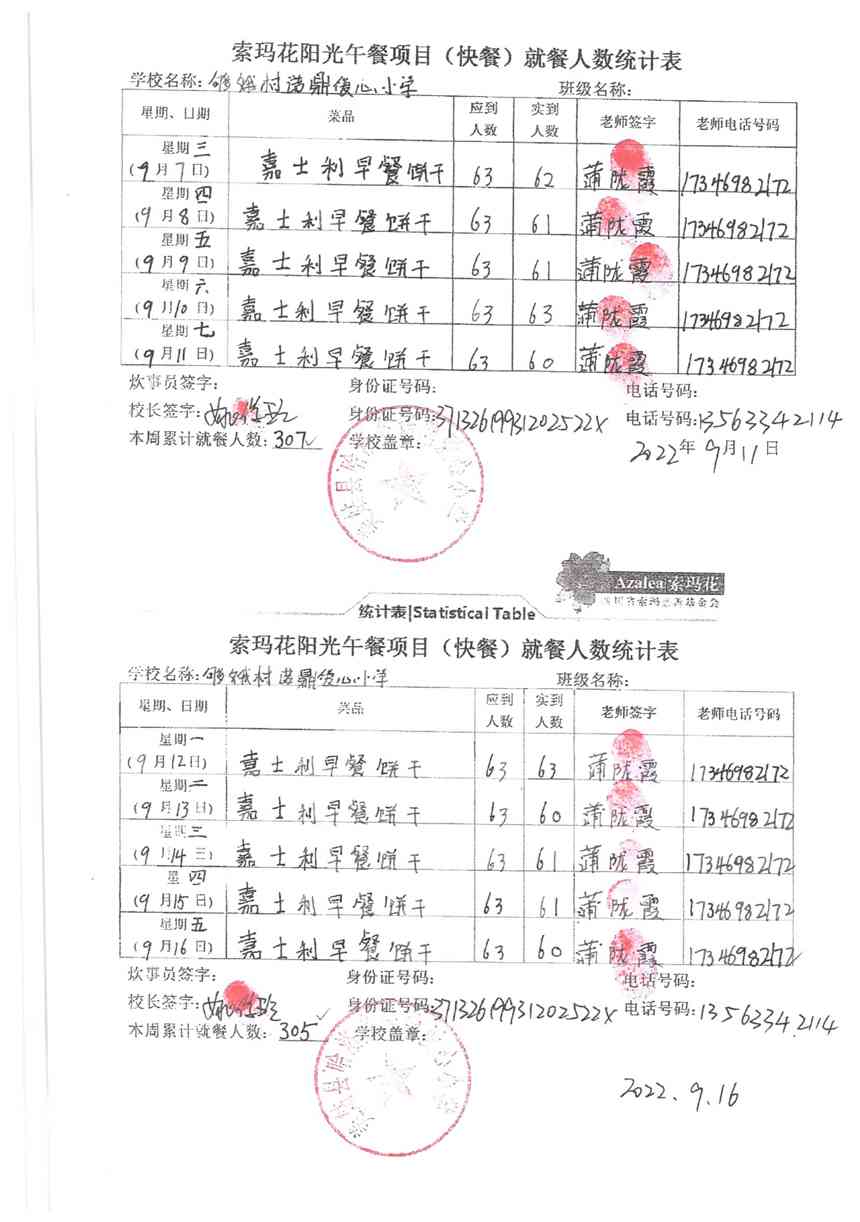 索玛花阳光午餐项目（快餐）就餐人数统计表
学校名称: 村诺鼎爱心小学 班级名称:
星期、日期 菜品 应到人数 实到人数 老师签字 老师电话号码
星期三 (9月7日) 嘉士利早餐饼干 63 62 蒲陇霞 17346982172
星期四 (9月8日) 嘉士利早餐饼干 63 61 蒲陇霞 17346982172
星期五 (9月9日) 嘉士利早餐饼干 63 61 蒲陇霞 17346982172
星期六 (9月10日) 嘉士利早餐饼干 63 63 蒲陇霞 17346982172
星期七 (9月11日) 嘉士利早餐饼干 63 60 蒲陇霞 17346982172
炊事员签字: 身份证号码: 电话号码:
校长签字: 身份证号码:37132619931202522X 电话号码:13563342114
本周累计就餐人数: 307 学校盖章:
2022年9月11日
Azalea 索玛花
四川省索玛慈善基金会
统计表|Statistical Table
索玛花阳光午餐项目（快餐）就餐人数统计表
学校名称: 村诺鼎爱心小学 班级名称:
星期、日期 菜品 应到人数 实到人数 老师签字 老师电话号码
星期一 (9月12日) 嘉士利早餐饼干 63 63 蒲陇霞 17346982172
星期二 (9月13日) 嘉士利早餐饼干 63 60 蒲陇霞 17346982172
星期三 (9月14日) 嘉士利早餐饼干 63 61 蒲陇霞 17346982172
星四 (9月15日) 嘉士利早餐饼干 63 61 蒲陇霞 17346982172
星期五 (9月16日) 嘉士利早餐饼干 63 60 蒲陇霞 17346982172
炊事员签字: 身份证号码: 电话号码:
校长签字: 身份证号码:37132619931202522X 电话号码:13563342114
本周累计就餐人数: 305 学校盖章:
2022.9.16